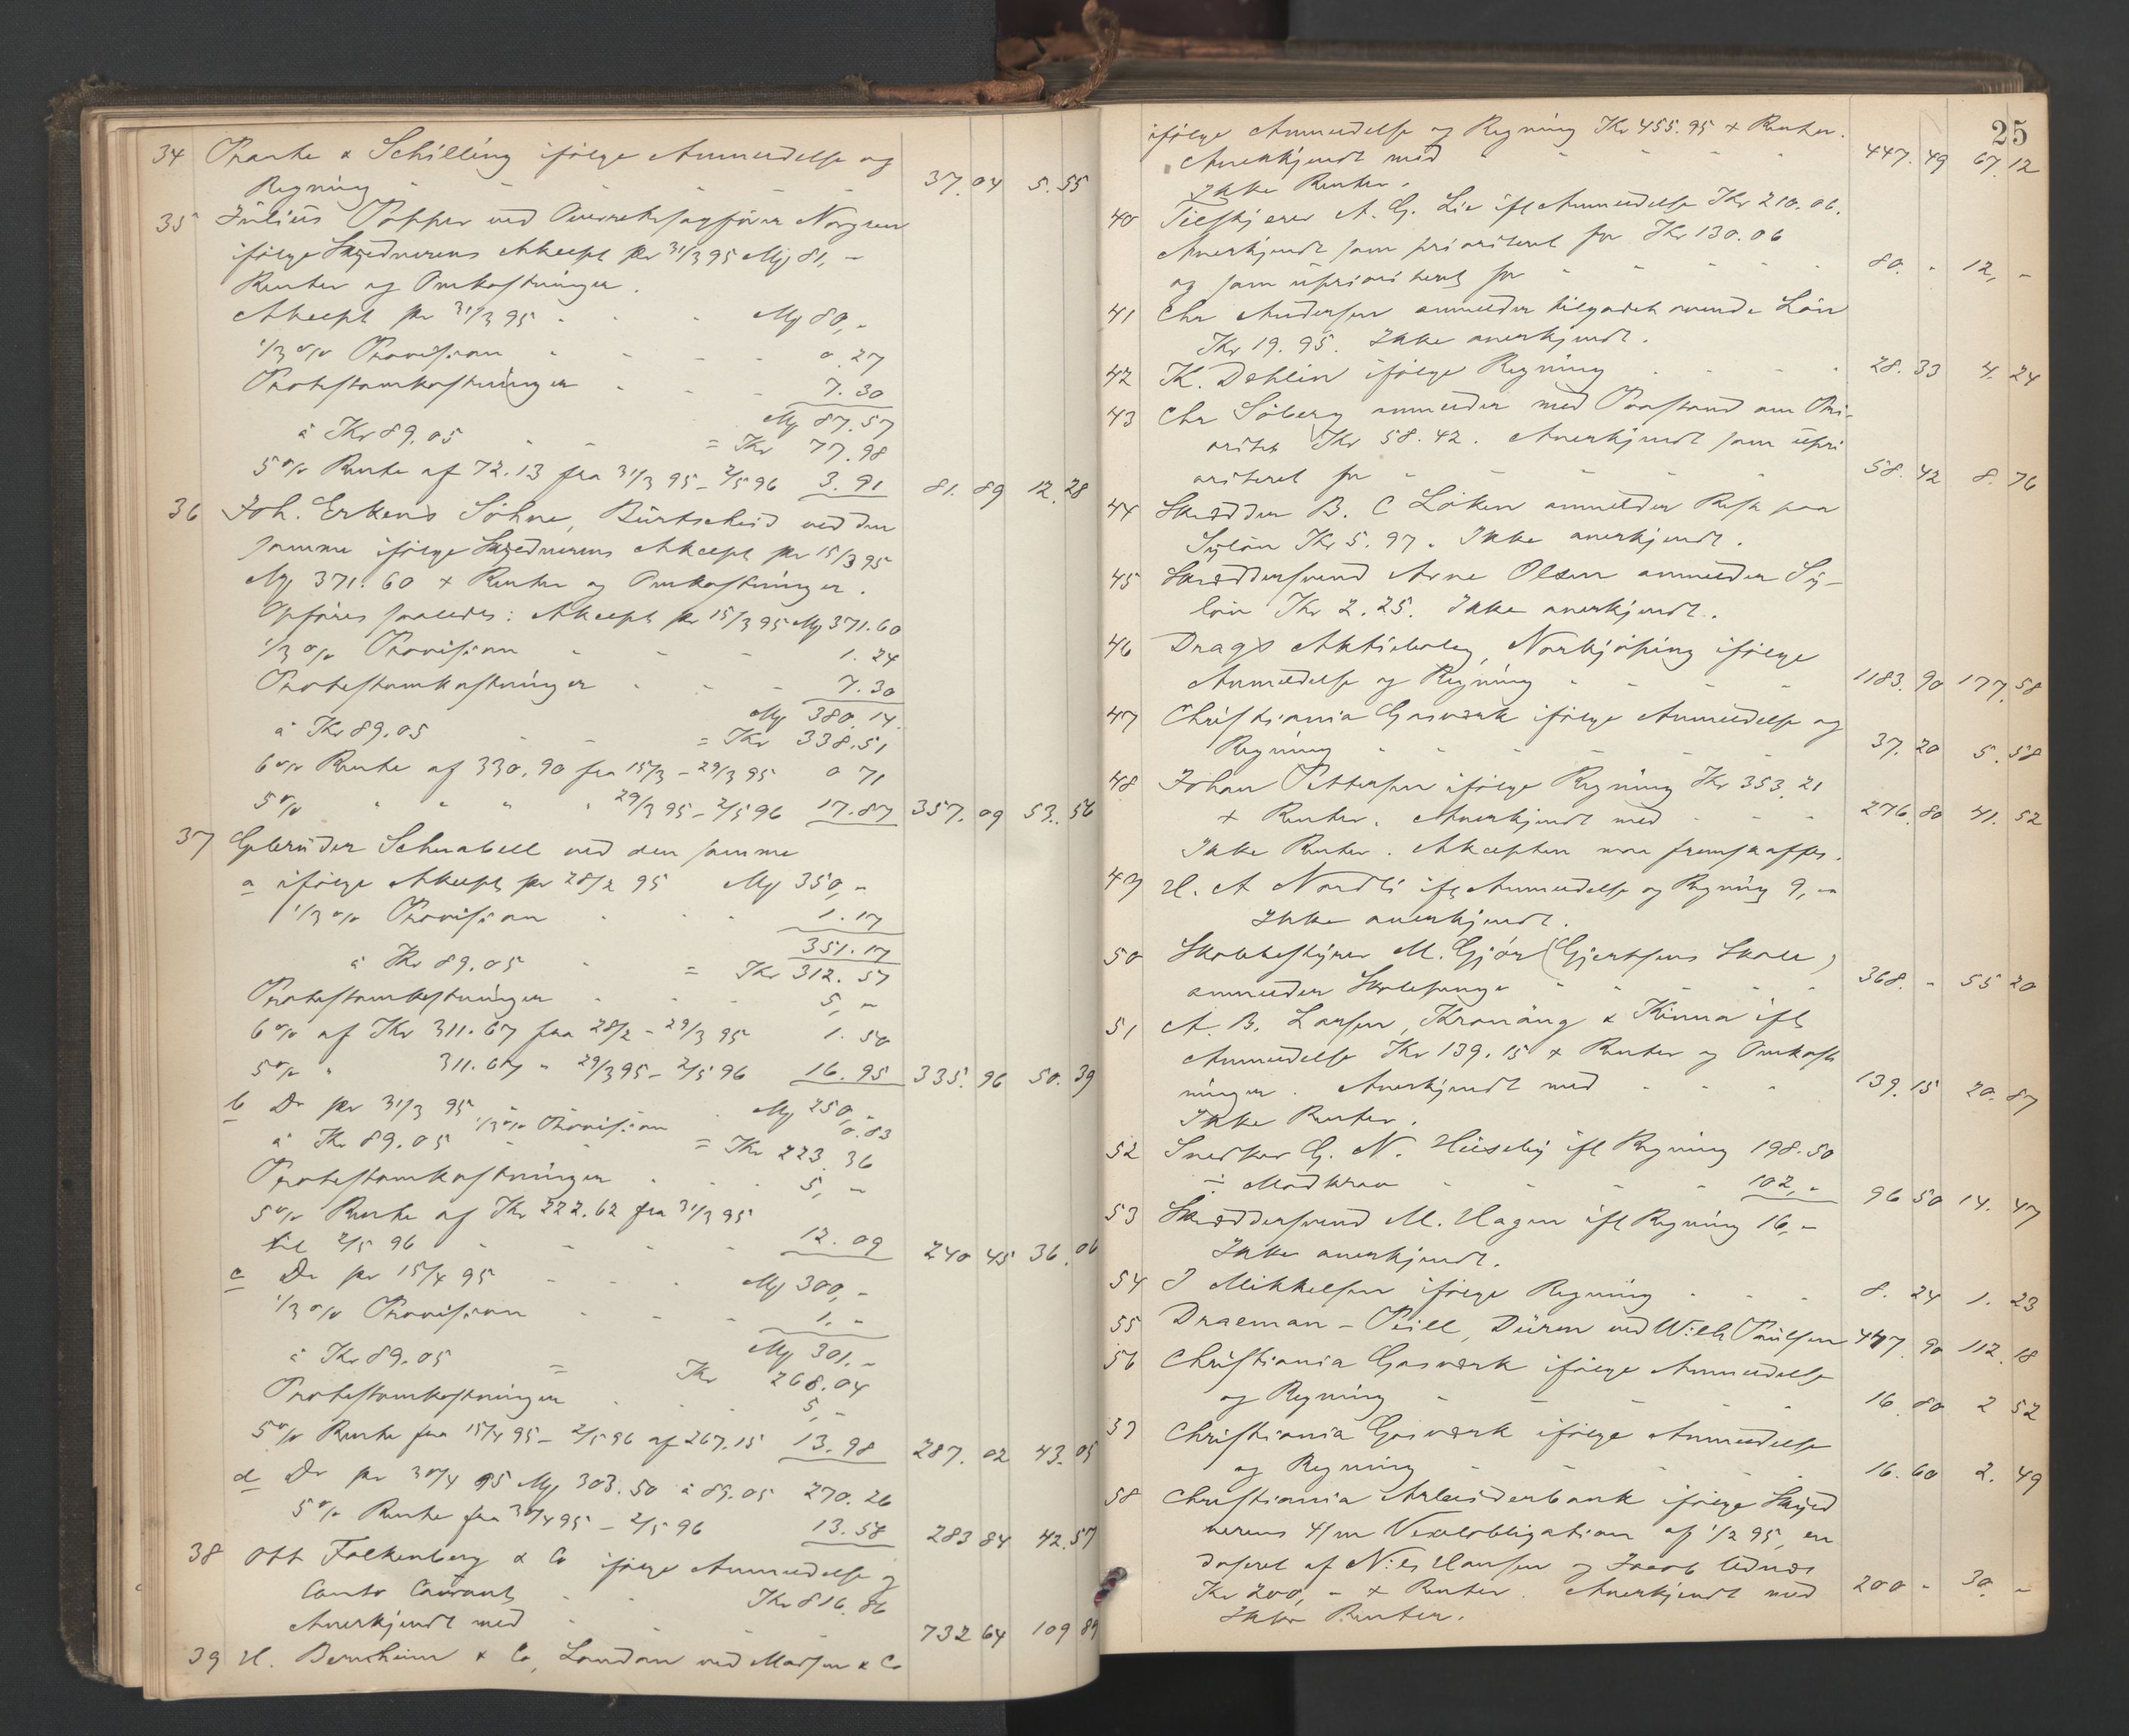 34 Franke & Schilling ifølge Anmeldelse og
Regning - - - - - 37.04 5.55
35 Julius Popper ved Overretssagfører Norgren
ifølge Skyldnerens Akcept pr 31/3 95 Mk 81,-
Renter og Omkostninger.
Akcept pr 31/3 95 - - Mk 80,-
1/3 % Provision - - - - 0.27
Protestomkostninger - - - 7.30
Mk 87.57
à Kr 89.05 - - = Kr 77.98
5 % Rente af 72.13 fra 31/3 95 - 2/5 96 3.91 81.89 12.28
36 Joh. Erkens Söhne, Burtscheid ved den
samme ifølge Skyldnerens Akcept pr 15/3 95
Mk 371.60 + Renter og Omkostninger.
Opføres saaledes: Akcept pr 15/3 95 Mk 371.60
1/3 % Provision - - - 1.24
Protestomkostninger - - - 7.30
Mk 380.14.
à Kr 89.05 - - = Kr 338.51
6 % Rente af 330.90 fra 15/3 - 29/3 95 0 71
5 % " " " " 29/3 95 - 2/5 96 17.87 357.09 53.56
37 Gebrüder Schnabell ved den samme
a ifølge Akcept pr 28/2 95 Mk 350,-
1/3 % Provision - - - 1.17
351.17
à Kr 89.05 - = Kr 312.57
Protestomkostninger - - - 5,-
6 % af Kr 311.67 fra 28/2 - 29/3 95 1.50
5 % " 311.67 " 29/3 95 - 2/5 96 16.95 335.96 50.39
b Do pr 31/3 95 - Mk 250,-
1/3 % Provision 0.83
à Kr 89.05 - - = Kr 223.36
Protestomkostninger - - - 5,-
5 % Rente af Kr 222.62 fra 31/3 95
til 2/5 96 - - - - 12.09 240 45 36.06
c Do pr 15/4 95 - - - Mk 300,-
1/3 % Provision - - - 1.-
Mk 301.-
à Kr 89.05 = Kr 268.04
Protestomkostninger - - - 5,-
5 % Rente fra 15/4 95 - 2/5 96 af 267.15 13.98 287.02 43.05
d Do pr 30/4 95 Mk 303.50 à 89.05 270.26
5 % Rente fra 30/4 95 - 2/5 96 13.58 283 84 42.57
38 Ott Falkenberg & Co ifølge Anmeldelse og
Conto Courant - - Kr 816.86
Anerkjendt med - - - - 732 64 109 89
39 H. Bernheim & Co, London ved Madsen & Co
25
ifølge Anmeldelse og Regning Kr 455.95 + Renter.
Anerkjendt med - - - - - 447.49 67.12
Ikke Renter.
40 Tilskjærer A. G. Lie ifl Anmeldelse Kr 210.06.
Anerkjendt som prioriteret for Kr 130.06
og som uprioriteret for - - - - 80.- 12,-
41 Chr Andersen anmelder tilgodehavende Løn
Kr 19.95. Ikke anerkjendt.
42 K. Dehlin ifølge Regning - - - - 28.33 4.24
43 Chr Søberg anmelder med Paastand om Pri-
oritet Kr 58.42. Anerkjendt som upri
oriteret for - - - - - 58.42 8.76
44 Skrædder B. C Løken anmelder Rest paa
Syløn Kr 5.97. Ikke anerkjendt.
45 Skræddersvend Arne Olsen anmelder Sy-
løn Kr 2.25. Ikke anerkjendt.
46 Drags Aktiebolag, Norkjøping ifølge
Anmeldelse og Regning - - - - 1183.90 177.58
47 Christiania Gasværk ifølge Anmeldelse og
Regning - - - - - - 37.20 5.58
48 Johan Pettersen ifølge Regning Kr 353.21
+ Renter. Anerkjendt med - - - 276.80 41.52
Ikke Renter. Akcepten maa fremskaffes.
49 H. A Nordli ifl Anmeldelse og Regning 9,-
Ikke anerkjendt.
50 Skolebestyrer M. Gjør (Gjertsens Skole)
anmelder Skolepenge - - - - - 368.- 55 20
51 A. B. Larsen, Kronäng & Kinna ifl
Anmeldelse Kr 139.15 + Renter og Omkost
ninger. Anerkjendt med - - - 139.15 20.87
Ikke Renter.
52 Snedker G. N. Huseby ifl Regning 198.50
÷ Modkrav - - - - 102,- 96 50 14.47
53 Skræddersvend M. Hagen ifl Regning 16,-
Ikke anerkjendt.
54 J Mikkelsen ifølge Regning - - - 8.24 1.23
55 Draeman - Peill, Düren ved Wilh Paulsen 747.90 112.18
56 Christiania Gasværk ifølge Anmeldelse
og Regning - - - - - 16.80 2 52
57 Christiania Gasværk ifølge Anmeldelse
og Regning - - - - - 16.60 2.49
58 Christiania Arbeiderbank ifølge Skyld
nerens 4/m Vexelobligation af 1/2 95, en
dosseret af Nils Hansen og Jacob
Kr 200,- + Renter. Anerkjendt med 200 - 30.-
Ikke Renter.